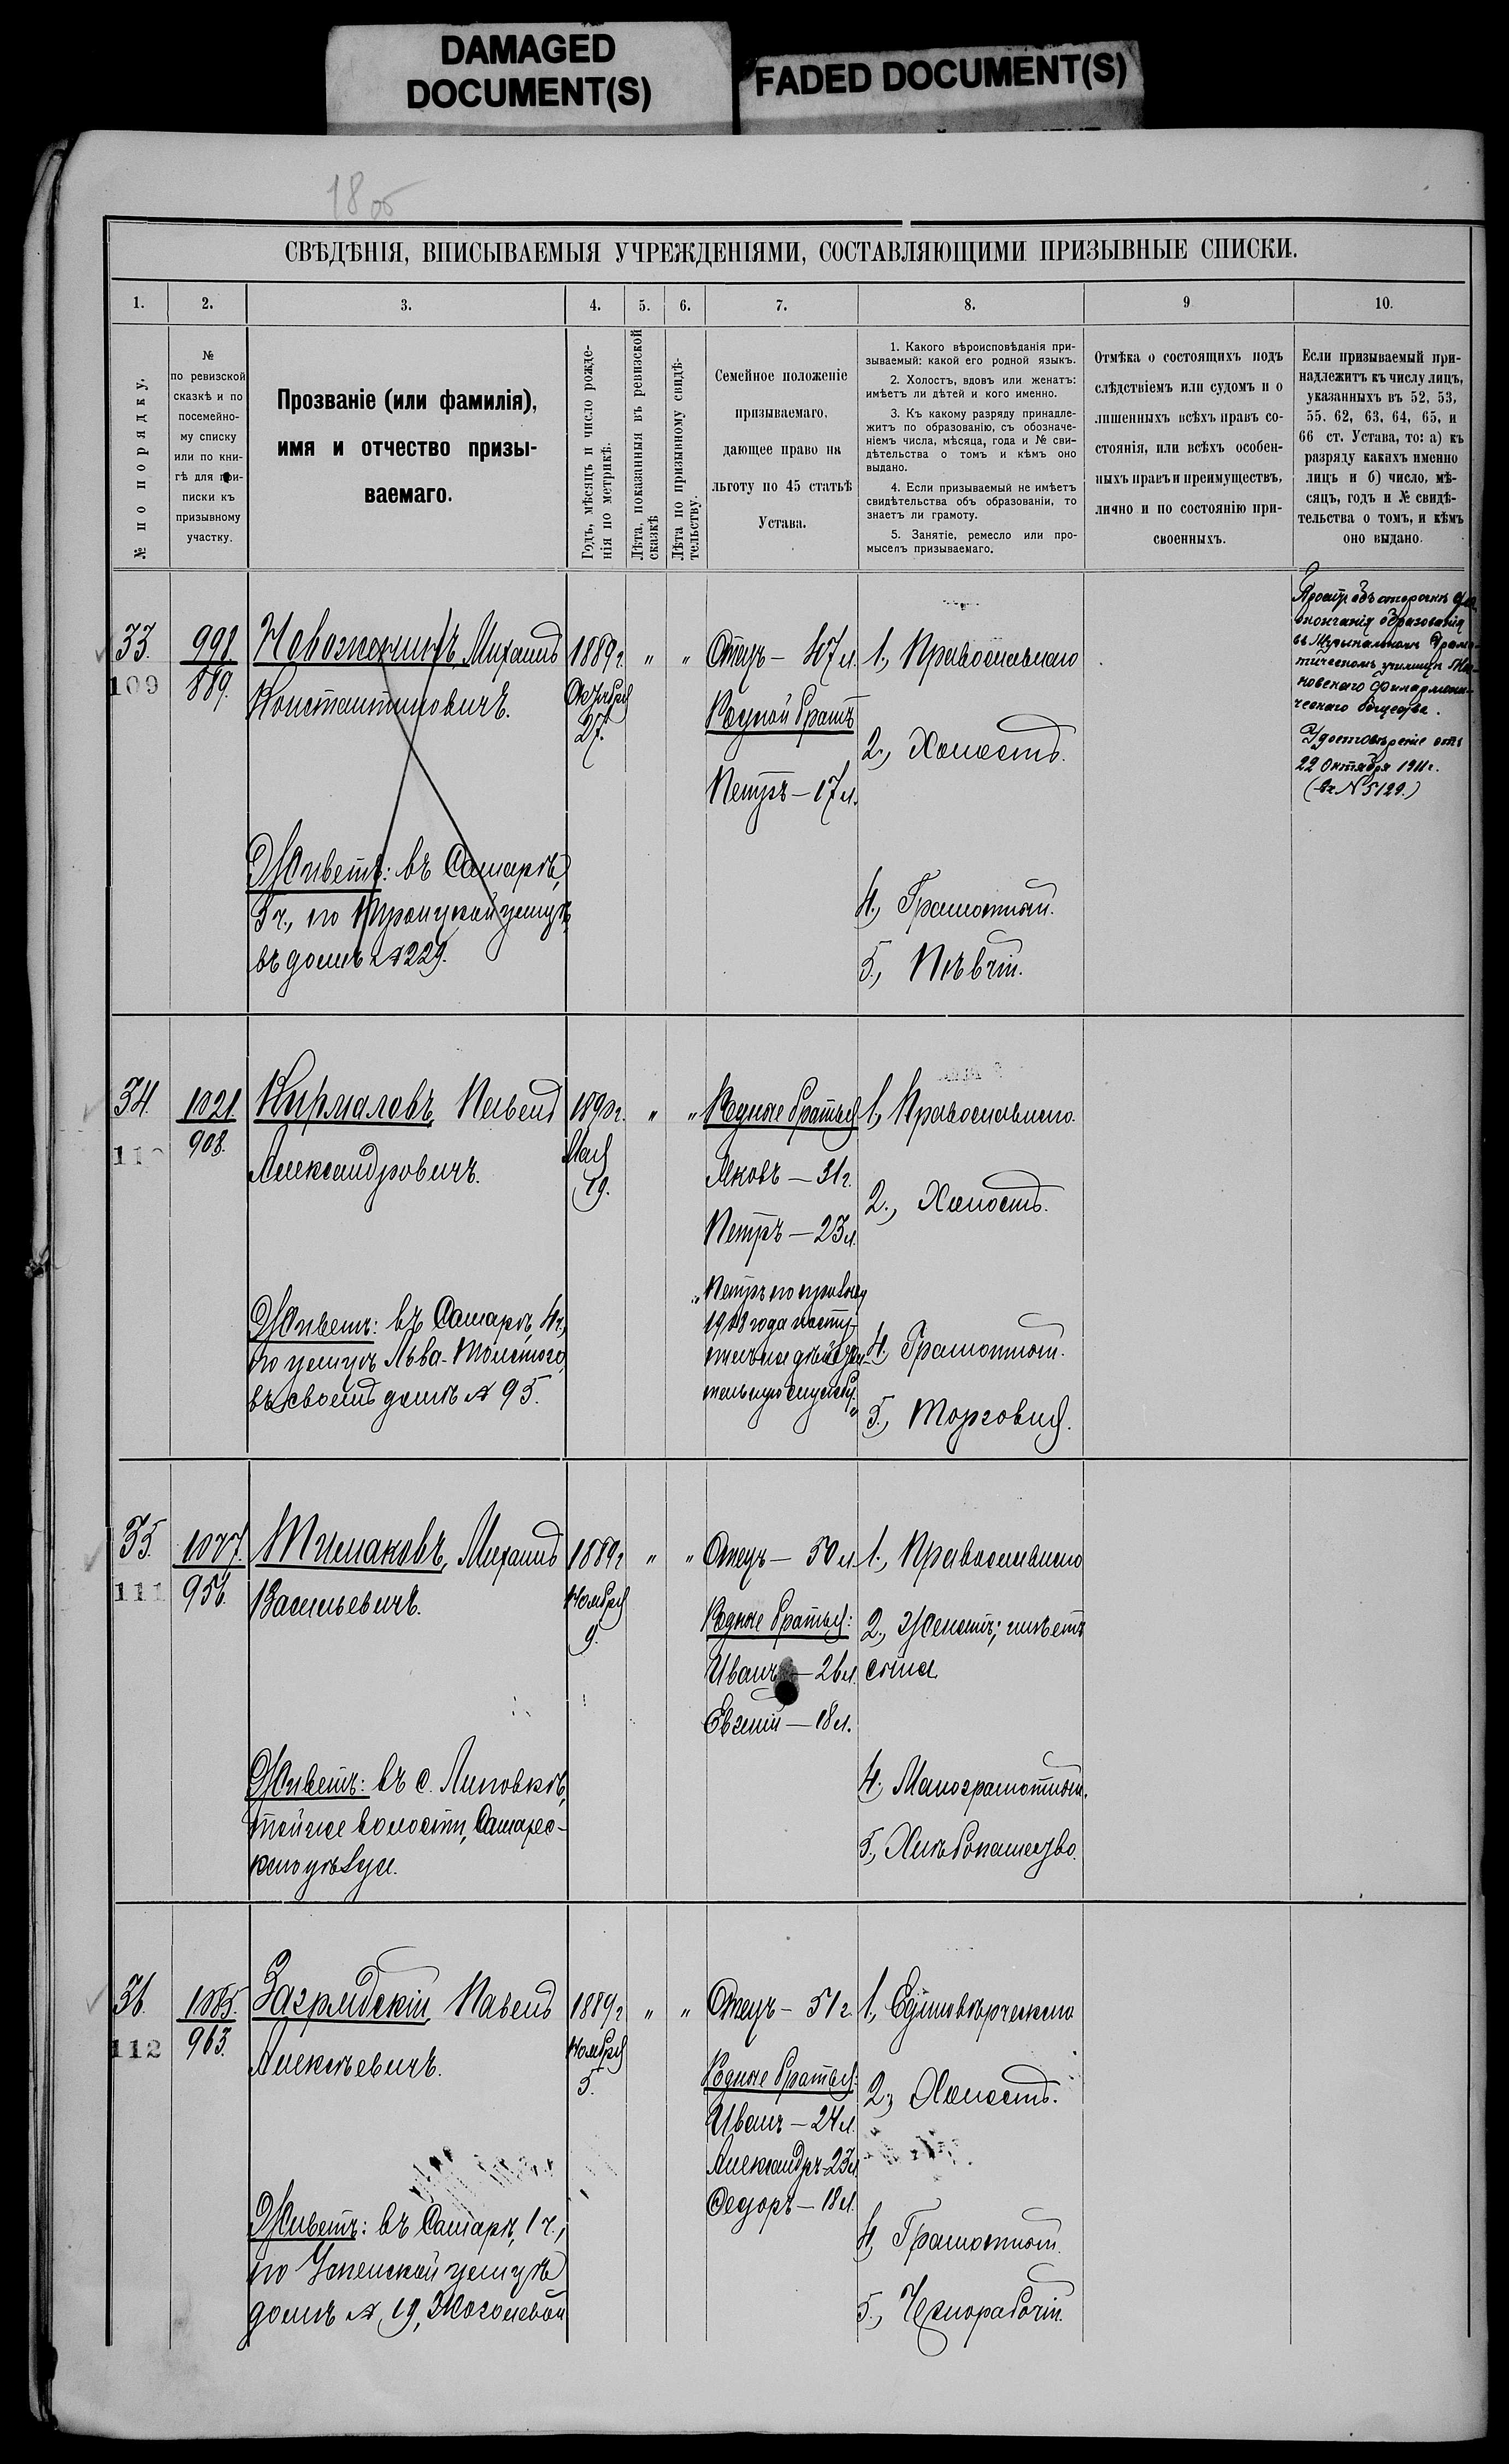 DAMAGED
DOCUMENT(S)
FADED DOCUMENT(S)
СВѢДѢНІЯ, ВПИСЫВАЕМЫЯ УЧРЕЖДЕНІЯМИ, СОСТАВЛЯЮЩИМИ ПРИЗЫВНЫЕ СПИСКИ.
1.
2.
3.
4.
5.
6.
7.
8.
9
10.
№ по порядку.
№
по ревизской
сказкѣ и по
посемейно-
му списку
или по кни-
гѣ для при-
писки къ
призывному
участку.
Прозваніе (или фамилія),
имя и отчество призы-
ваемаго.
Годъ, мѣсяцъ и число рожде-
нія по метрикѣ.
Лѣта, показанныя въ ревизской
сказкѣ
Лѣта по призывному свидѣ-
тельству.
Семейное положеніе
призываемаго,
дающее право на
льготу по 45 статьѣ
Устава.
1. Какого вѣроисповѣданія при-
зываемый: какой его родной языкъ.
2. Холостъ, вдовъ или женатъ:
имѣетъ ли дѣтей и кого именно.
3. Къ какому разряду принадле-
житъ по образованію, съ обозначе-
ніемъ числа, мѣсяца, года и № сви-
дѣтельства о томъ и кѣмъ оно
выдано.
4. Если призываемый не имѣетъ
свидѣтельства объ образованіи, то
знаетъ ли грамоту.
5. Занятіе, ремесло или про-
мыселъ призываемаго.
Отмѣка о состоящихъ подъ
слѣдствіемъ или судомъ и о
лишенныхъ всѣхъ правъ со-
стоянія, или всѣхъ особен-
ныхъ правъ и преимуществъ,
лично и по состоянію при-
своенныхъ.
Если призываемый при-
надлежитъ къ числу лицъ,
указанныхъ въ 52, 53,
55. 62, 63, 64, 65, и
66 ст. Устава, то: а) къ
разряду какихъ именно
лицъ и б) число, мѣ-
сяцъ, годъ и № свидѣ-
тельства о томъ, и кѣмъ
оно выдано.
33.
109
991
889.
Михаилъ
Константиновичъ.
Живетъ: въ Самарѣ,
5 ч., по Троицкой улицѣ,
въ домѣ № 229.
1889 г.
Октября
27.
" "
Отецъ — 47 л.
Родной братъ
Петръ — 17 л.
1., Православнаго
2., Холостъ.
4., Грамотный.
5., Пѣвчій.
Просит объ отсрочкѣ для
окончанія образованія
въ Музыкальномъ Драма-
тическомъ училищѣ Мос-
ковскаго Филармони-
ческаго Общества.
Удостовѣреніе отъ
22 Октября 1911 г.
(вх № 5129.)
34.
110
1021.
908.
Кирмаловъ, Павелъ
Александровичъ.
Живетъ: въ Самарѣ, 4 ч.,
по улицѣ Льва-Толстого,
въ своемъ домѣ № 95.
1890 г.
Мая
19.
" "
Родные братья
Яковъ — 31 г.
Петръ — 23 л.
"Петръ по призыву
года посту-
пилъ на дѣйстви-
тельную службу."
1., Православнаго.
2., Холостъ.
4., Грамотный.
5., Торговля.
35.
111
1077.
956.
Тимаковъ, Михаилъ
Васильевичъ.
Живетъ: въ с. Липовкѣ,
той же волости, Самарс-
каго уѣзда.
1889 г
Ноября
9.
" "
Отецъ — 50 л.
Родные братья:
Иванъ — 26 л.
Евгеній — 18 л.
1., Православнаго
2., Женатъ; имѣетъ
сына.
4., Малограмотный.
5., Хлѣбопашество.
36.
112
1085.
963.
Загрядскій, Павелъ
Алексѣевичъ.
Живетъ: въ Самарѣ, 1 ч.,
по Успенской улицѣ
домъ № 19,
1889 г
Ноября
5.
" "
Отецъ — 51 г.
Родные братья:
Иванъ — 24 л.
Александръ — 23 л
Федоръ — 18 л.
1., Единовѣрческаго
2., Холостъ.
4., Грамотный.
5., Чернорабочій.